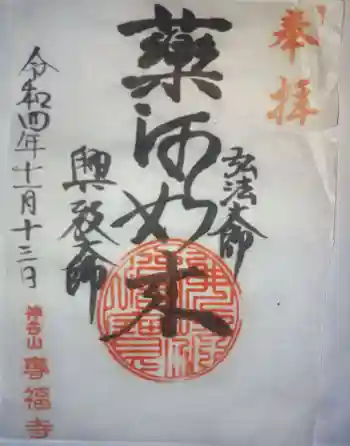 奉拝
弘法大師
藥師如来
興教大師
令和四年十一月十三日
福寺